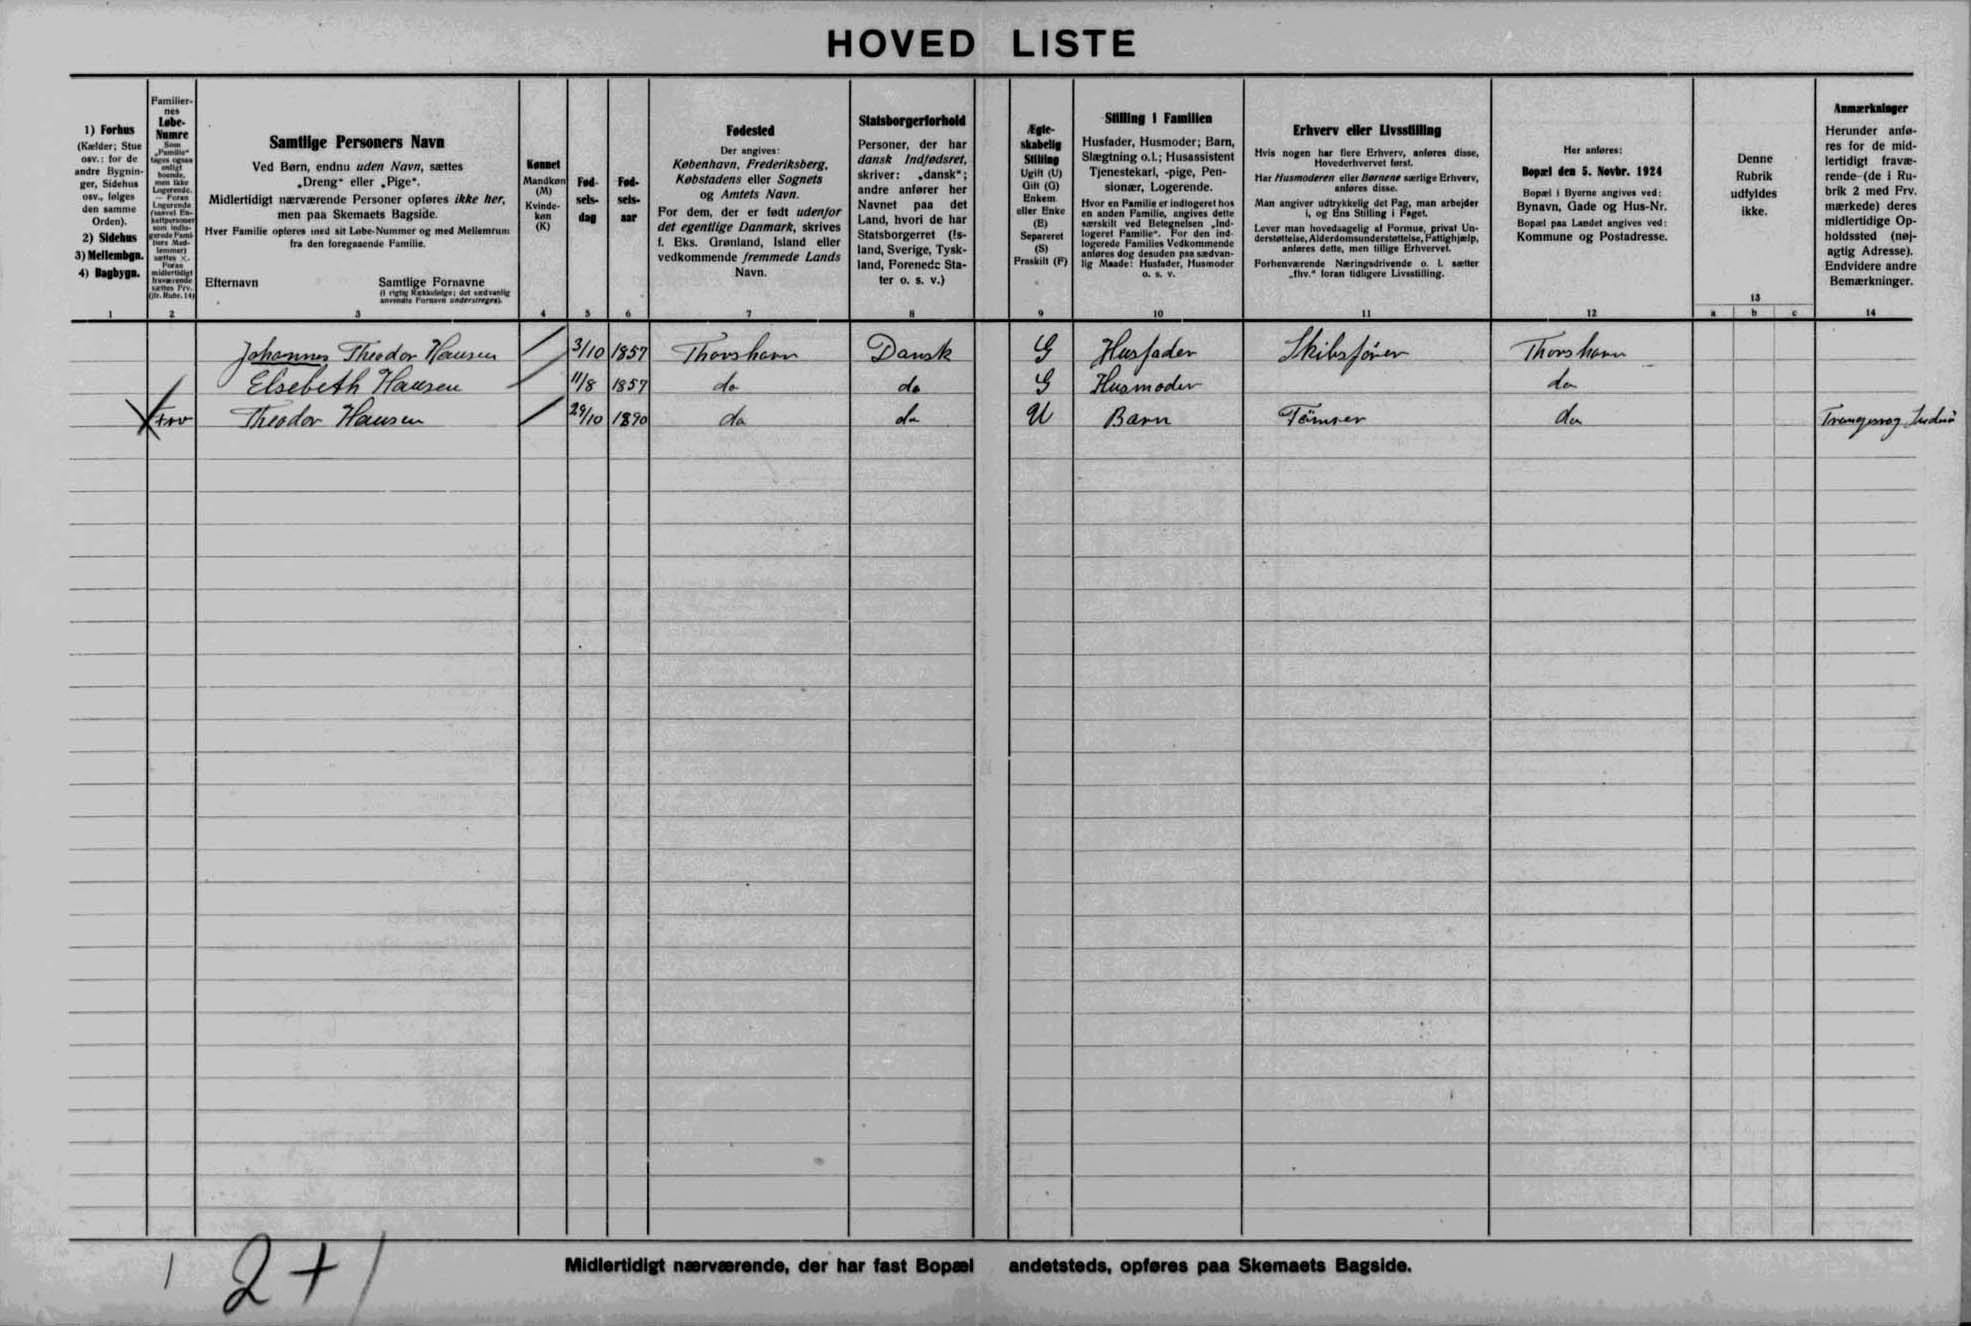 HOVED LISTE
1) Forhus
(Kælder; Stue
osv.: for de
andre Bygnin-
ger, Sidehus
osv., følges
den samme
Orden).
2) Sidehus
3) Mellembgn.
4) Bagbygn.
1
Familier-
nes
Løbe-
Numre
Som
„Familie“
tages ogsaa
enligt
boende,
men ikke
Logerende.
— Foran
Logerende
sættes ×.
Foran
midlertidigt
fraværende
sættes Frv.
(jfr. Rubr. 14)
2
Samtlige Personers Navn
Ved Børn, endnu uden Navn, sættes
„Dreng“ eller „Pige“.
Midlertidigt nærværende Personer opføres ikke her,
men paa Skemaets Bagside.
Hver Familie opføres med sit Løbe-Nummer og med Mellemrum
fra den foregaaende Familie.
Efternavn Samtlige Fornavne
(i rigtig Rækkefølge; det sædvanlig
anvendte Fornavn understreges).
3
Kønnet
Mandkøn
(M)
Kvinde-
køn
(K)
4
Fød-
sels-
dag
5
Fød-
sels-
aar
6
Fødested
Der angives:
København, Frederiksberg,
Købstadens eller Sognets
og Amtets Navn.
For dem, der er født udenfor
det egentlige Danmark, skrives
f. Eks. Grønland, Island eller
vedkommende fremmede Lands
Navn.
7
Statsborgerforhold
Personer, der har
dansk Indfødsret,
skriver: „dansk“;
andre anfører her
Navnet paa det
Land, hvori de har
Statsborgerret (Is-
land, Sverige, Tysk-
land, Forenede Sta-
ter o. s. v.)
8
Ægte-
skabelig
Stilling
Ugift (U)
Gift (G)
Enkem.
eller Enke
(E)
Separeret
(S)
Fraskilt (F)
9
Stilling i Familien
Husfader, Husmoder; Barn,
Slægtning o.l.; Husassistent
Tjenestekarl, -pige, Pen-
sionær, Logerende.
Hvor en Familie er indlogeret hos
en anden Familie, angives dette
særskilt ved Betegnelsen „Ind-
logeret Familie“. For den ind-
logerede Families Vedkommende
anføres dog desuden paa sædvan-
lig Maade: Husfader, Husmoder
o. s. v.
10
Erhverv eller Livsstilling
Hvis nogen har flere Erhverv, anføres disse,
Hovederhvervet først.
Har Husmoderen eller Børnene særlige Erhverv,
anføres disse.
Man angiver udtrykkelig det Fag, man arbejder
i, og Ens Stilling i Faget.
Lever man hovedsagelig af Formue, privat Un-
derstøttelse, Alderdomsunderstøttelse, Fattighjælp,
anføres dette, men tillige Erhvervet.
Forhenværende Næringsdrivende o. l. sætter
„fhv.“ foran tidligere Livsstilling.
11
Her anføres:
Bopæl den 5. Novbr. 1924
Bopæl i Byerne angives ved:
Bynavn, Gade og Hus-Nr.
Bopæl paa Landet angives ved:
Kommune og Postadresse.
12
Denne
Rubrik
udfyldes
ikke.
13
a b c
Anmærkninger
Herunder anfø-
res for de mid-
lertidigt fravæ-
rende (de i Ru-
brik 2 med Frv.
mærkede) deres
midlertidige Op-
holdssted (nøj-
agtig Adresse).
Endvidere andre
Bemærkninger.
14
Johannes Theodor Hansen 3/10 1857 Thorshavn Dansk G Husfader Skibsfører Thorshavn
Elsebeth Hansen 11/8 1857 do do G Husmoder do
Frv Theodor Hansen 29/10 1890 do do U Barn Tømrer do
1 2 + 1
Midlertidigt nærværende, der har fast Bopæl andetsteds, opføres paa Skemaets Bagside.